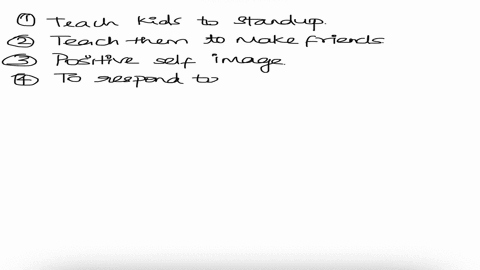 ① Teach kids to standup.
② Teach them to make friends
③ Positive self image
④ To respond to